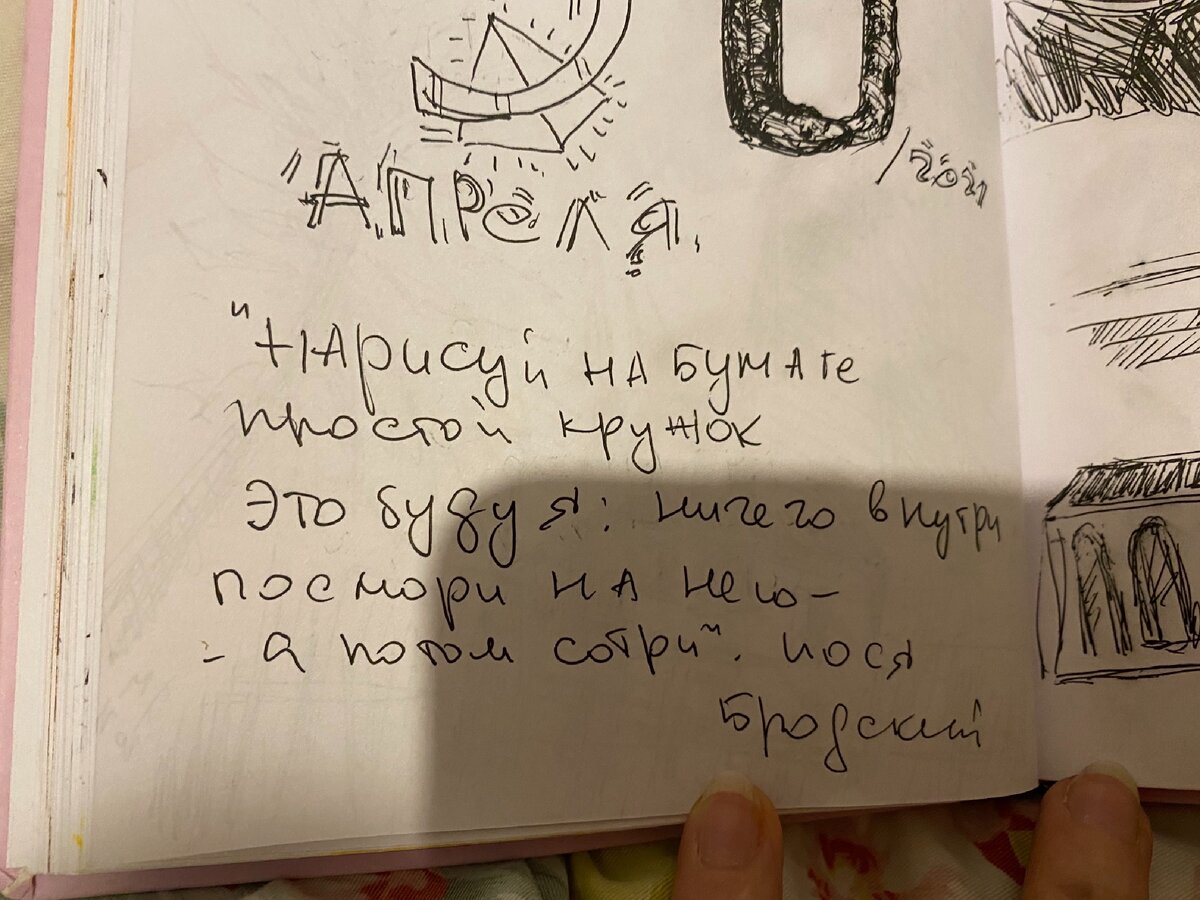 АПРЕЛЯ,
/2021
"НАрисуй НА БУМАГЕ
простой кружок
Это буду я: ничего внутри
посмори на него-
- а потом сотри". иося
Бродский